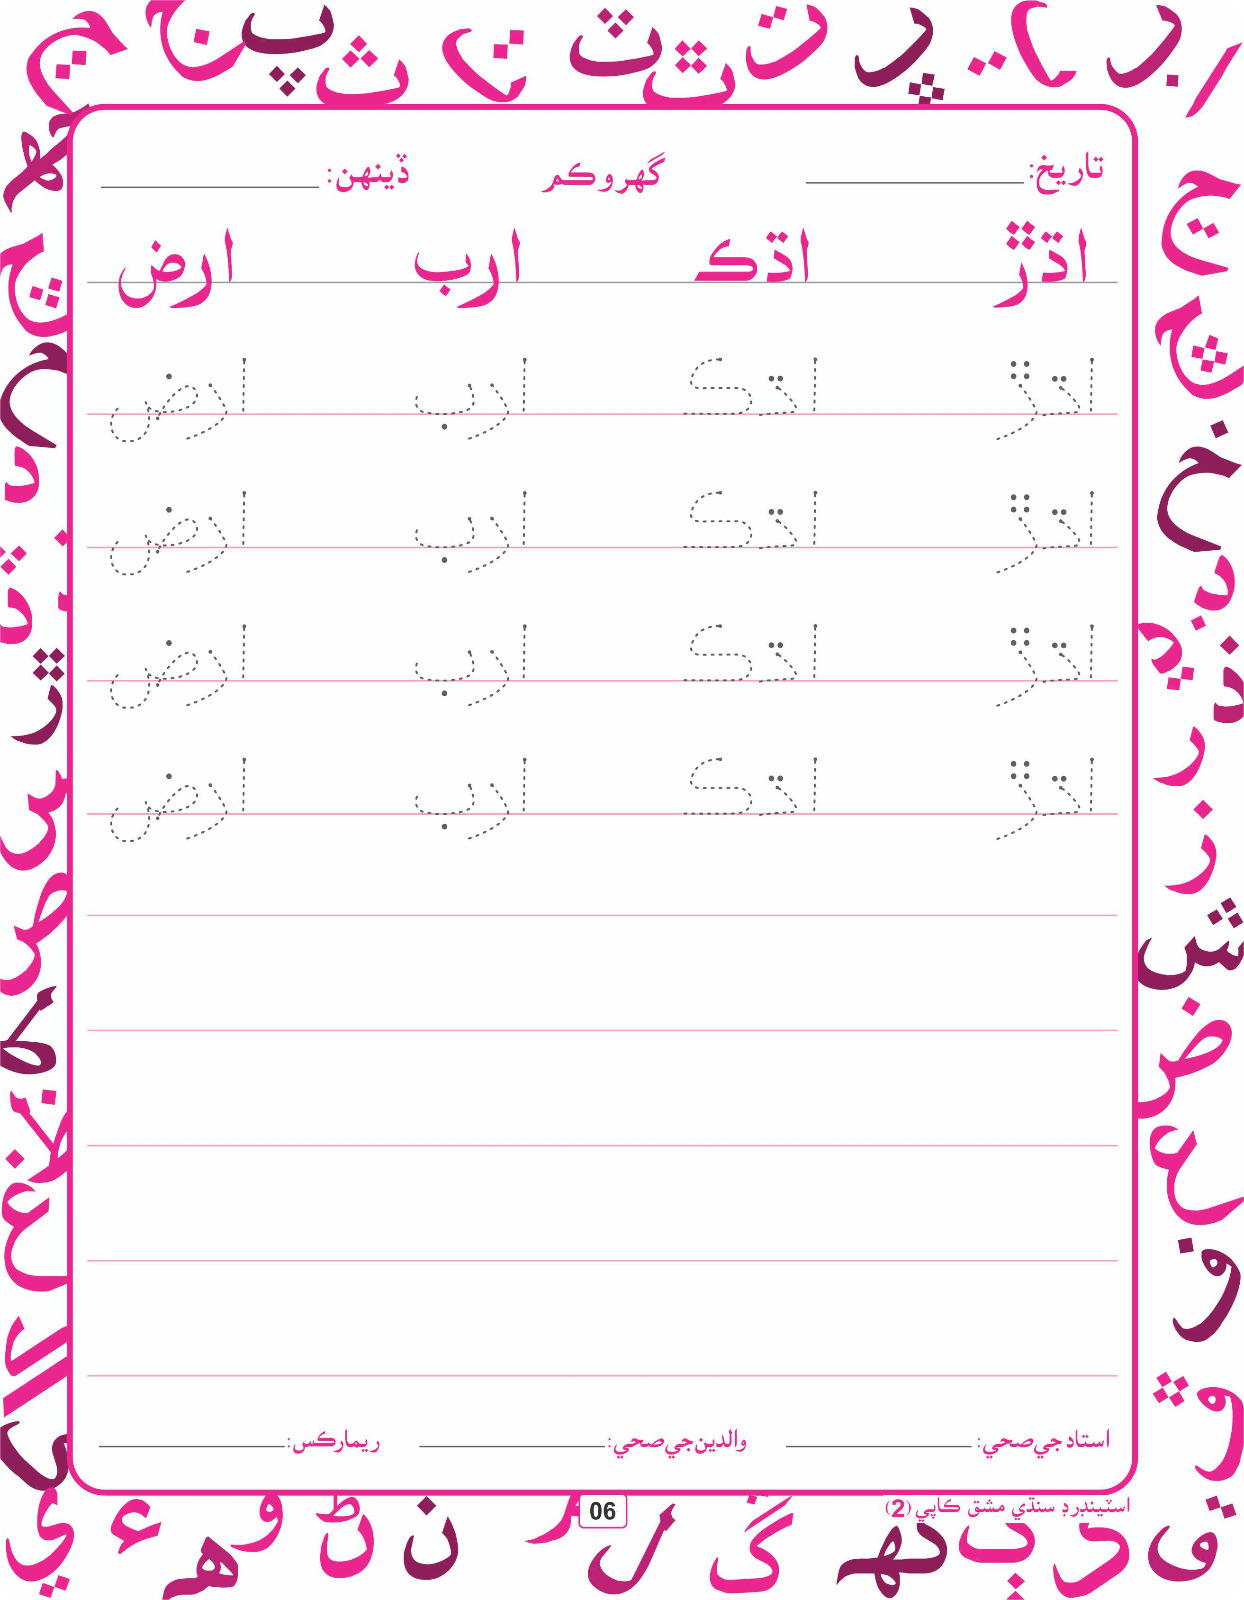 تاريخ: گهرو ڪم ڏينهن:
اڌڙ اڌڪ ارب ارض
اڌڙ اڌڪ ارب ارض
اڌڙ اڌڪ ارب ارض
اڌڙ اڌڪ ارب ارض
اڌڙ اڌڪ ارب ارض
استاد جي صحي: والدين جي صحي: ريمارڪس:
اسٽينڊرڊ سنڌي مشق ڪاپي (2)
06